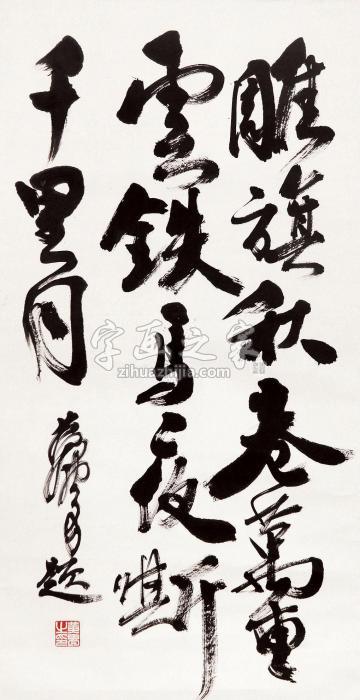 雕旗秋卷萬重
雲鉄馬夜嘶
千里月
題
字画之家
zihuazhijia.com